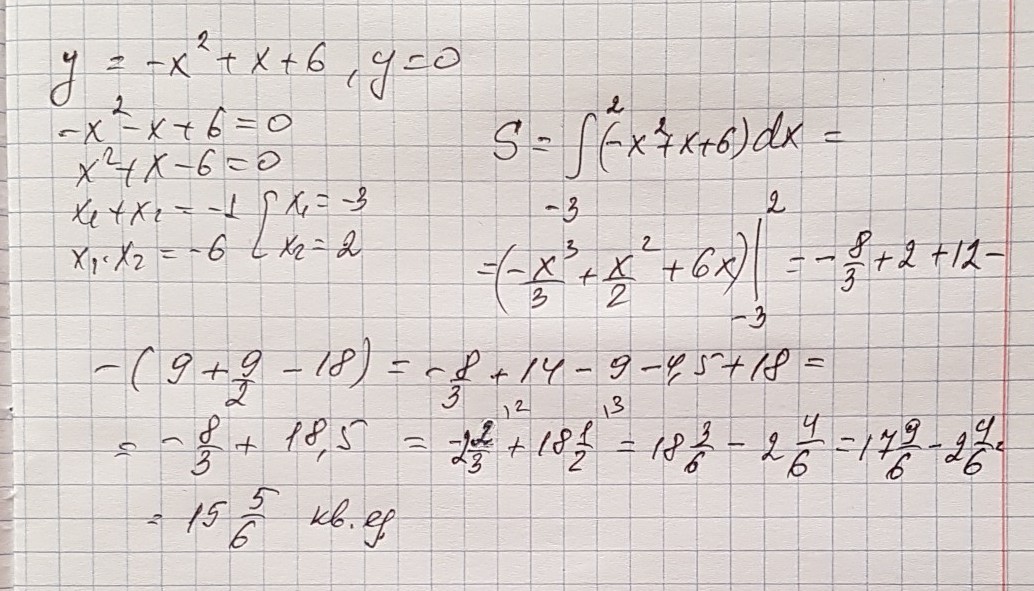 y = -x² + x + 6, y = 0
-x² - x + 6 = 0
x² + x - 6 = 0
x₁ + x₂ = -1 { x₁ = -3
x₁ · x₂ = -6 { x₂ = 2
S = ∫₋₃² (-x² + x + 6) dx =
= (-x³/3 + x²/2 + 6x) |₋₃² = -8/3 + 2 + 12 -
- (9 + 9/2 - 18) = -8/3 + 14 - 9 - 4,5 + 18 =
= -8/3 + 18,5 = -2 2/3 ,2 + 18 1/2 ,3 = 18 3/6 - 2 4/6 = 17 9/6 - 2 4/6 =
= 15 5/6 кв. ед